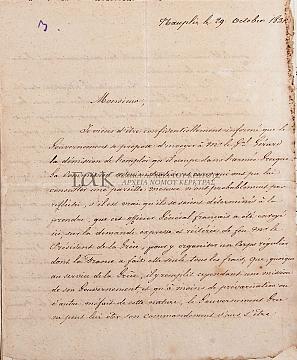 Nauplie le 29 Octobre 1831
Monsieur,
Je viens d'être confidentiellement informé que le
Gouvernement a proposé d'envoyer à Mr. le Gal. Gérard
la démission de l'emploi qu'il occupe dans l'armée Grecque.
ΙΑΚ ΑΡΧΕΙΑ ΝΟΜΟΥ ΚΕΡΚΥΡΑΣ
conseiller une pareille mesure n'ont probablement pas
réfléchi, s'il est vrai qu'ils se soient déterminés à la
prendre, que cet officier Général français a été envoyé
ici sur la demande expresse et réitérée de feu Mr. le
Président de la Grèce, pour y organiser un Corps régulier
dont la France a fait elle seule tous les frais, que quoique
au service de la Grèce, il y remplit cependant une mission
de son Gouvernement et qu'à moins de prévarication ou
d'autre méfait de cette nature, le Gouvernement Grec
ne peut lui ôter son commandement sans s'être